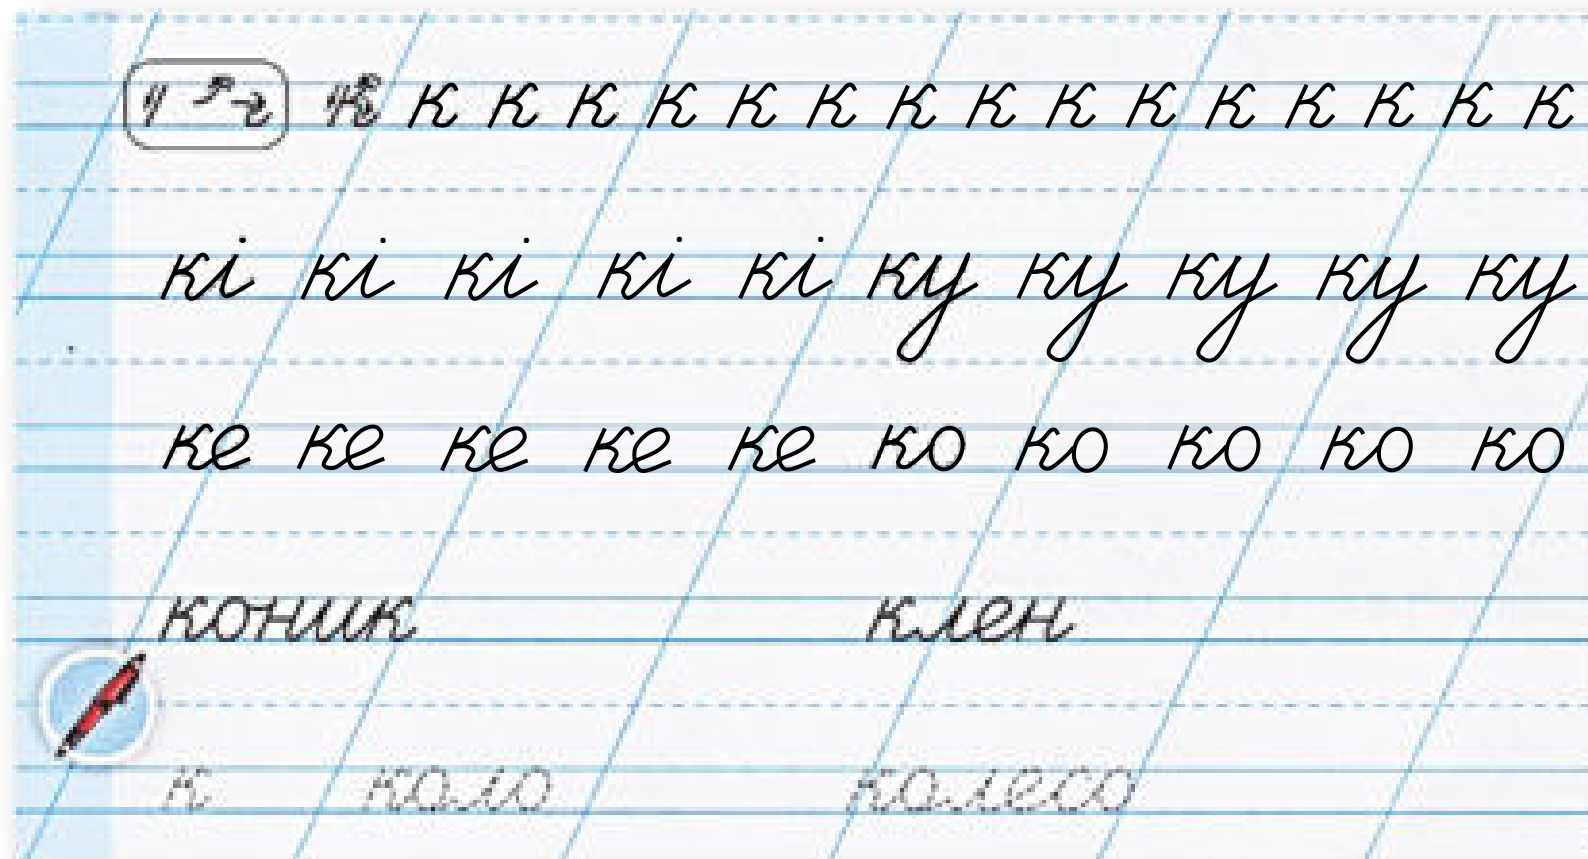 к к к к к к к к к к к к к к к к
кі кі кі кі кі ку ку ку ку ку
ке ке ке ке ке ко ко ко ко ко
коник клен
к коло колесо